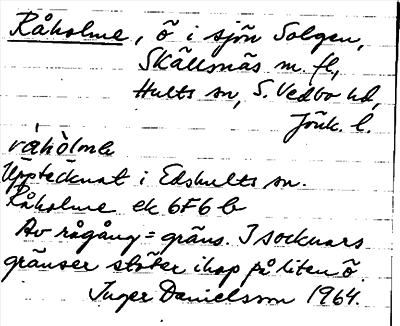 Råholme, ö i sjön Solgen,
Skällsnäs m. fl,
Hults sn, S. Vedbo hd,
Jönk. l.
råhòlmə
Upptecknat i Edshults sn.
Råholme ek 6F6 b
Av rågång = gräns. 3 socknars
gränser stöter ihop på liten ö.
Inger Danielsson 1964.